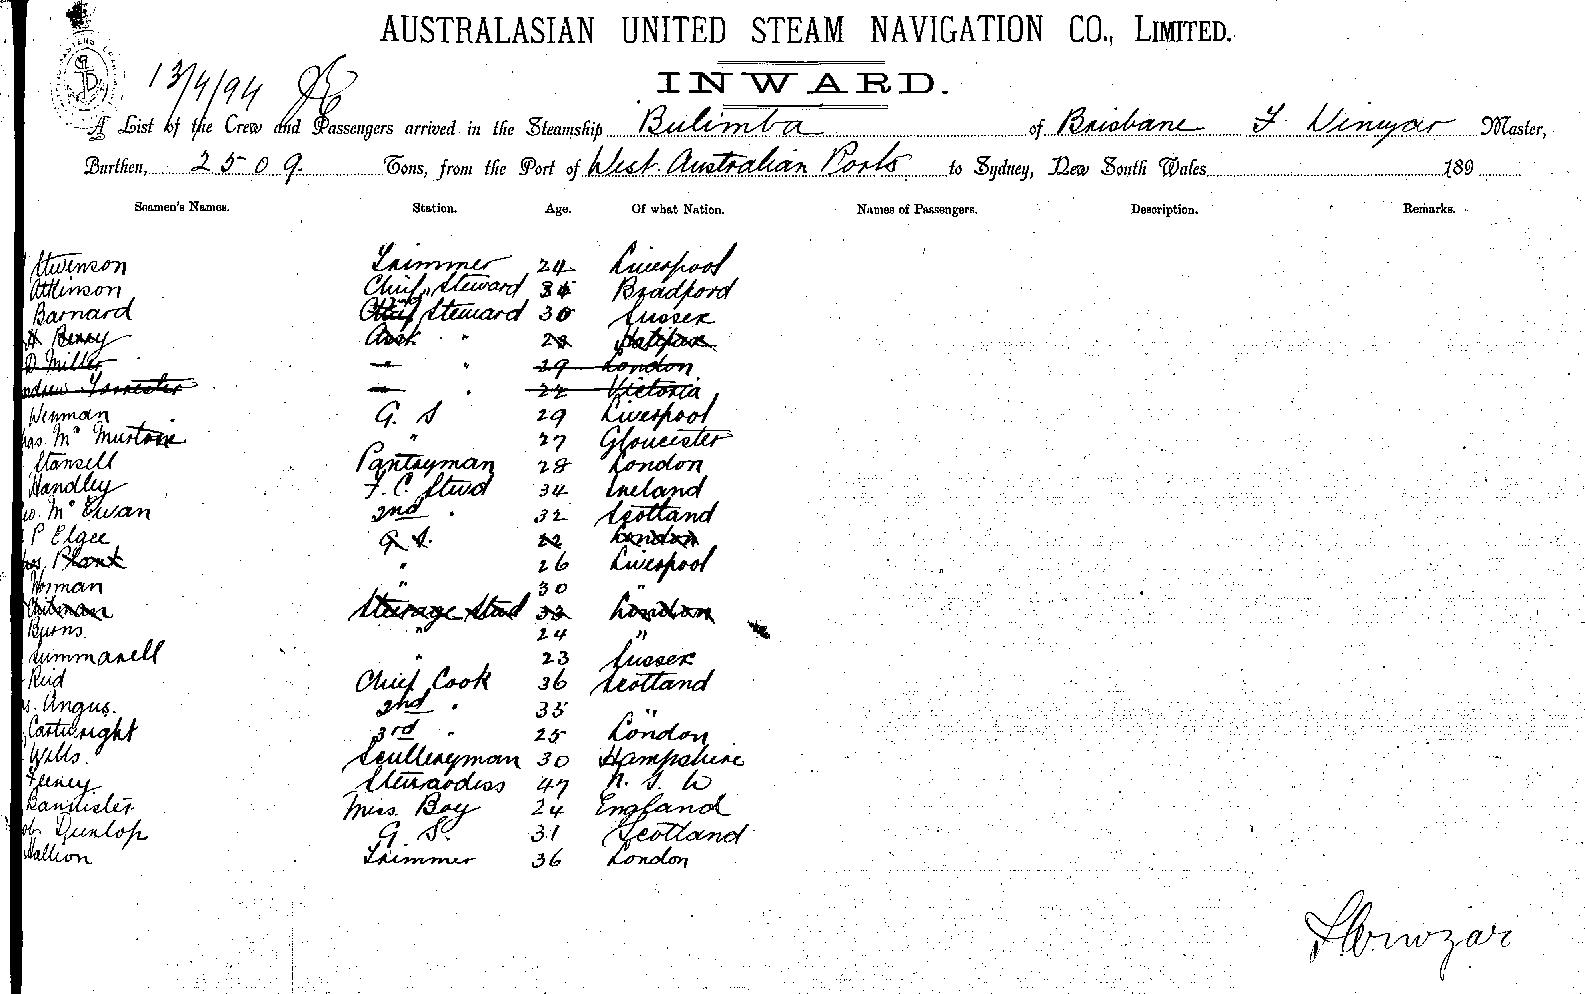 AUSTRALASIAN UNITED STEAM NAVIGATION CO., LIMITED.
13/4/94
INWARD.
A List of the Crew and Passengers arrived in the Steamship Bulimba of Brisbane F Winzar Master,
Burthen, 2509. Tons, from the Port of West Australian Ports to Sydney, New South Wales 189
Seamen's Names. Station. Age. Of what Nation. Names of Passengers. Description. Remarks.
Stevenson Trimmer 24 Liverpool
Atkinson Chief Steward 35 Bradford
Barnard 2nd Steward 30 Sussex
H Berry Asst " 28 Halifax
D Miller — " 29 London
Andrew Forrester — " 22 Victoria
Wenman G. S 29 Liverpool
Chas. Mc Murtrie " 27 Gloucester
Stansell Pantryman 28 London
Handley F. C. Stwd 34 Ireland
Geo. Mc Ewan 2nd " 32 Scotland
P Elgee G S. 22 London
Plant " 26 Liverpool
Norman " 30 "
Whitman Steerage Stwd 33 London
Burns. " 24 "
Summarell " 23 Sussex
Reid Chief Cook 36 Scotland
Angus. 2nd " 35 "
Cartwright 3rd " 25 London
Wills. Sculleryman 30 Hampshire
Feeney Stewardess 47 N. S. W
Bannister Mess. Boy 24 England
Rob. Dunlop G. S. 31 Scotland
Hallion Trimmer 36 London
F Winzar